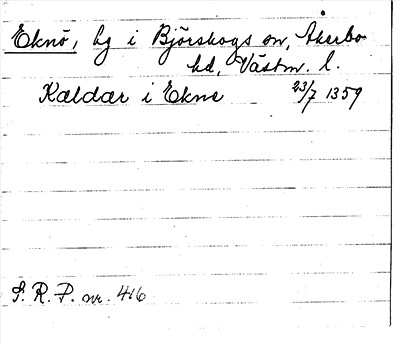 Eknö, hg i Björskogs sn, Åkerbo
hd, Västm. l.
Kældær i Ekne 23/7 1359
S. R. P. nr. 416